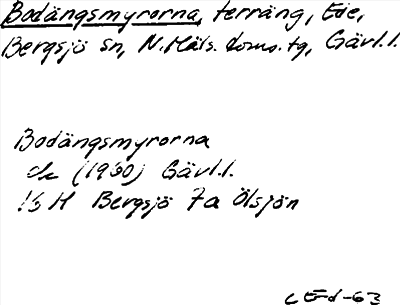 Bodängsmyrorna, terräng, Ede,
Bergsjö sn, N. Häls. doms. tg, Gävl. l.
Bodängsmyrorna
ek (1960) Gävl. l.
16 H Bergsjö 7a Ölsjön
CEd-63